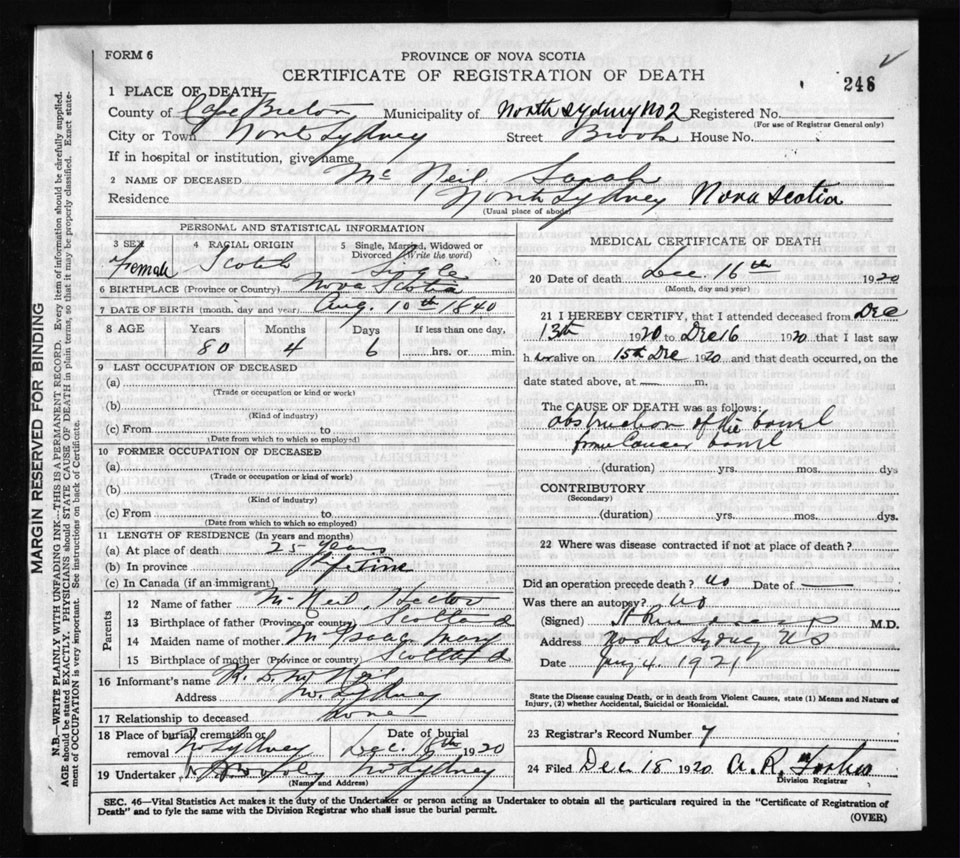 FORM 6
PROVINCE OF NOVA SCOTIA
CERTIFICATE OF REGISTRATION OF DEATH
246
1 PLACE OF DEATH
County of Cape Breton Municipality of North Sydney No 2 Registered No.
(For use of Registrar General only)
City or Town North Sydney Street Brook House No.
If in hospital or institution, give name
2 NAME OF DECEASED Mc Neil, Sarah
Residence North Sydney Nova Scotia
(Usual place of abode)
PERSONAL AND STATISTICAL INFORMATION
3 SEX 4 RACIAL ORIGIN 5 Single, Married, Widowed or Divorced (Write the word)
Female Scotch Single
6 BIRTHPLACE (Province or Country) Nova Scotia
7 DATE OF BIRTH (month, day and year) Aug. 10th 1840
8 AGE Years Months Days If less than one day,
80 4 6 hrs. or min.
9 LAST OCCUPATION OF DECEASED
(a)
(Trade or occupation or kind or work)
(b)
(Kind of industry)
(c) From to
(Date from which to which so employed)
10 FORMER OCCUPATION OF DECEASED
(a)
(Trade or occupation or kind of work)
(b)
(Kind of industry)
(c) From to
(Date from which to which so employed)
11 LENGTH OF RESIDENCE (In years and months)
(a) At place of death 25 years
(b) In province Lifetime
(c) In Canada (if an immigrant)
Parents
12 Name of father McNeil, Hector
13 Birthplace of father (Province or country) Scotland
14 Maiden name of mother McIsaac Mary
15 Birthplace of mother (Province or country) Scotland
16 Informant's name R. D. McNeil
Address No. Sydney
17 Relationship to deceased none
18 Place of burial cremation or removal No Sydney Date of burial Dec. 16th 1920
19 Undertaker No Sydney
(Name and Address)
MEDICAL CERTIFICATE OF DEATH
20 Date of death Dec. 16th 1920
(Month, day and year)
21 I HEREBY CERTIFY, that I attended deceased from Dec
13th 1920 to Dec 16 1920 that I last saw
her alive on 15th Dec 1920 and that death occurred, on the
date stated above, at m.
The CAUSE OF DEATH was as follows:
obstruction of the bowel
from Cancer bowel
(duration) yrs. mos. dys
CONTRIBUTORY
(Secondary)
(duration) yrs. mos. dys.
22 Where was disease contracted if not at place of death?
Did an operation precede death? no Date of
Was there an autopsy? no
(Signed) M.D.
Address North Sydney NS
Date Jany 4. 1921
State the Disease causing Death, or in death from Violent Causes, state (1) Means and Nature of
Injury, (2) whether Accidental, Suicidal or Homicidal.
23 Registrar's Record Number 7
24 Filed Dec 18 1920 A. R. Forbes
Division Registrar
SEC. 46—Vital Statistics Act makes it the duty of the Undertaker or person acting as Undertaker to obtain all the particulars required in the "Certificate of Registration of
Death" and to fyle the same with the Division Registrar who shall issue the burial permit.
(OVER)
MARGIN RESERVED FOR BINDING
N.B.—WRITE PLAINLY WITH UNFADING INK—THIS IS A PERMANENT RECORD. Every item of information should be carefully supplied.
AGE should be stated EXACTLY. PHYSICIANS should STATE CAUSE OF DEATH in plain terms, so that it may be properly classified. Exact state-
ment of OCCUPATION is very important. See instructions on back of Certificate.